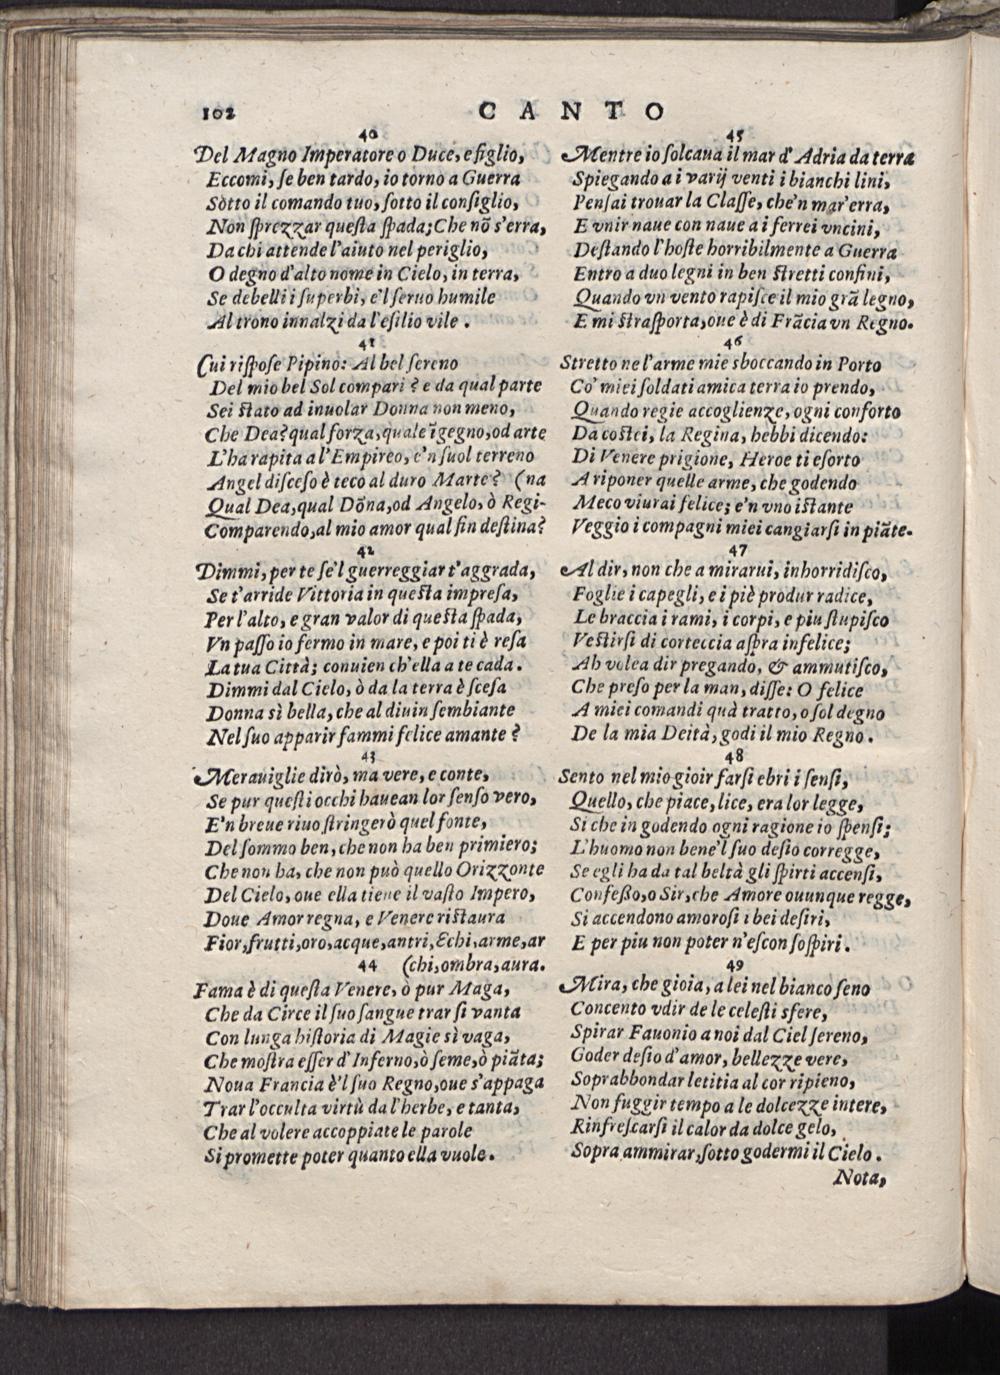 102
CANTO
40
Del Magno Imperatore o Duce, e figlio,
Eccomi, ſe ben tardo, io torno a Guerra
Sotto il comando tuo, ſotto il conſiglio,
Non ſprezzar queſta ſpada; Che nõ s'erra,
Da chi attende l'aiuto nel periglio,
O degno d'alto nome in Cielo, in terra,
Se debelli i ſuperbi, e'l ſeruo humile
Al trono innalzi da l'eſilio vile.
41
Cui riſpoſe Pipino: Al bel ſereno
Del mio bel Sol compari? e da qual parte
Sei ſtato ad inuolar Donna non meno,
Che Dea? qual forza, quale ĩgegno, od arte
L'ha rapita a l'Empireo, e'n ſuol terreno
Angel diſceſo è teco al duro Marte? (na
Qual Dea, qual Dõna, od Angelo, ò Regi-
Comparendo, al mio amor qual fin deſtina?
42
Dimmi, per te ſe'l guerreggiar t'aggrada,
Se t'arride Vittoria in queſta impreſa,
Per l'alto, e gran valor di queſta ſpada,
Vn paſſo io fermo in mare, e poi ti è reſa
La tua Città; conuien ch'ella a te cada.
Dimmi dal Cielo, ò da la terra è ſceſa
Donna sì bella, che al diuin ſembiante
Nel ſuo apparir fammi felice amante?
43
Merauiglie dirò, ma vere, e conte,
Se pur queſti occhi hauean lor ſenſo vero,
E'n breue riuo ſtringerò quel fonte,
Del ſommo ben, che non ha ben primiero;
Che non ha, che non può quello Orizzonte
Del Cielo, oue ella tiene il vaſto Impero,
Doue Amor regna, e Venere riſtaura
Fior, frutti, oro, acque, antri, Echi, arme, ar
44 (chi, ombra, aura.
Fama è di queſta Venere, ò pur Maga,
Che da Circe il ſuo ſangue trar ſi vanta
Con lunga hiſtoria di Magie sì vaga,
Che moſtra eſſer d'Inferno, ò ſeme, ò piãta;
Noua Francia è'l ſuo Regno, oue s'appaga
Trar l'occulta virtù da l'herbe, e tanta,
Che al volere accoppiate le parole
Si promette poter quanto ella vuole.
45
Mentre io ſolcaua il mar d'Adria da terra
Spiegando a i varij venti i bianchi lini,
Penſai trouar la Claſſe, che'n mar'erra,
E vnir naue con naue a i ferrei vncini,
Deſtando l'hoſte horribilmente a Guerra
Entro a duo legni in ben ſtretti confini,
Quando vn vento rapiſce il mio grã legno,
E mi ſtraſporta, oue è di Frãcia vn Regno.
46
Stretto ne l'arme mie sboccando in Porto
Co' miei ſoldati amica terra io prendo,
Quando regie accoglienze, ogni conforto
Da coſtei, la Regina, hebbi dicendo:
Di Venere prigione, Heroe ti eſorto
A riponer quelle arme, che godendo
Meco viurai felice; e'n vno iſtante
Veggio i compagni miei cangiarſi in piãte.
47
Al dir, non che a mirarui, inhorridiſco,
Foglie i capegli, e i piè produr radice,
Le braccia i rami, i corpi, e piu ſtupiſco
Veſtirſi di corteccia aſpra infelice;
Ah volea dir pregando, & ammutiſco,
Che preſo per la man, diſſe: O felice
A miei comandi quà tratto, o ſol degno
De la mia Deità, godi il mio Regno.
48
Sento nel mio gioir farſi ebri i ſenſi,
Quello, che piace, lice, era lor legge,
Si che in godendo ogni ragione io ſpenſi;
L'huomo non bene'l ſuo deſio corregge,
Se egli ha da tal beltà gli ſpirti accenſi,
Confeßo, o Sir, che Amore ouunque regge,
Si accendono amoroſi i bei deſiri,
E per piu non poter n'eſcon ſoſpiri.
49
Mira, che gioia, a lei nel bianco ſeno
Concento vdir de le celeſti sfere,
Spirar Fauonio a noi dal Ciel ſereno,
Goder deſio d'amor, bellezze vere,
Soprabbondar letitia al cor ripieno,
Non fuggir tempo a le dolcezze intere,
Rinfreſcarſi il calor da dolce gelo,
Sopra ammirar, ſotto godermi il Cielo.
Nota,